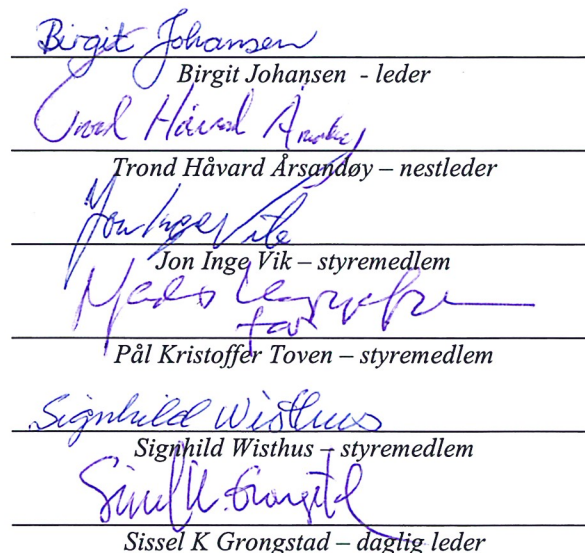 Birgit Johansen
Birgit Johansen - leder
Trond Håvard
Trond Håvard Årsandøy – nestleder
Jon Inge Vik
Jon Inge Vik – styremedlem
for
Pål Kristoffer Toven – styremedlem
Signhild Wisthus
Signhild Wisthus – styremedlem
Sissel K. Grongstad
Sissel K Grongstad – daglig leder